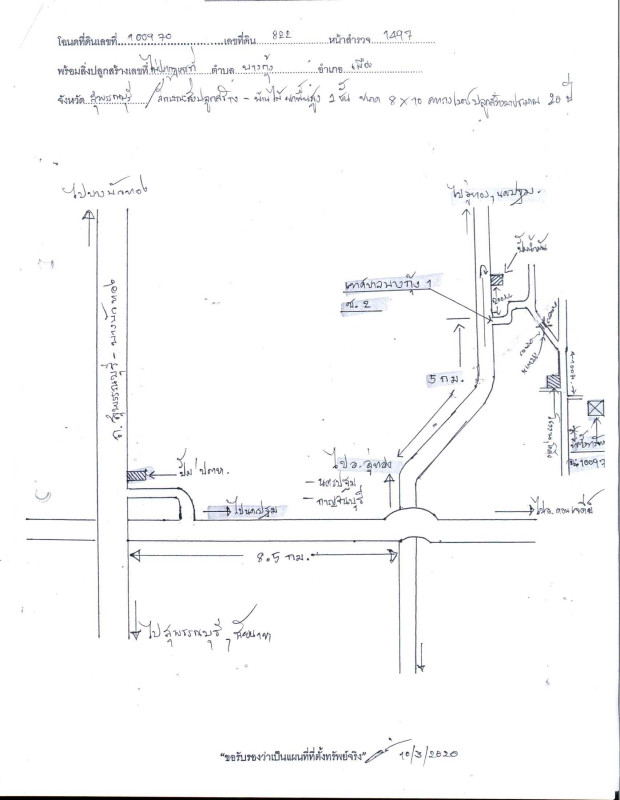 โฉนดที่ดินเลขที่ 100970 เลขที่ดิน 822 หน้าสำรวจ 1497
พร้อมสิ่งปลูกสร้างเลขที่ ไม่ปรากฏเลขที่ ตำบล บางกุ้ง อำเภอ เมือง
จังหวัด สุพรรณบุรี ลักษณะสิ่งปลูกสร้าง - บ้านไม้ยกพื้นสูง 1 ชั้น ขนาด 8 x 10 ปลูกสร้างมาประมาณ 20 ปี
ไปบางบัวทอง
ไปอู่ทอง, นครปฐม.
ปั๊มน้ำมัน
เทศบาลบางกุ้ง 1
ซ. 2
ถ. สุพรรณบุรี - บางบัวทอง
5 กม.
ปั๊ม ปตท.
ไปอ. อู่ทอง
- นครปฐม
- กาญจนบุรี
ไปนครปฐม
ไปอ. ดอนเจดีย์
8.5 กม.
ไปสุพรรณบุรี, ชัยนาท
"ขอรับรองว่าเป็นแผนที่ที่ตั้งทรัพย์จริง" 10/3/2020